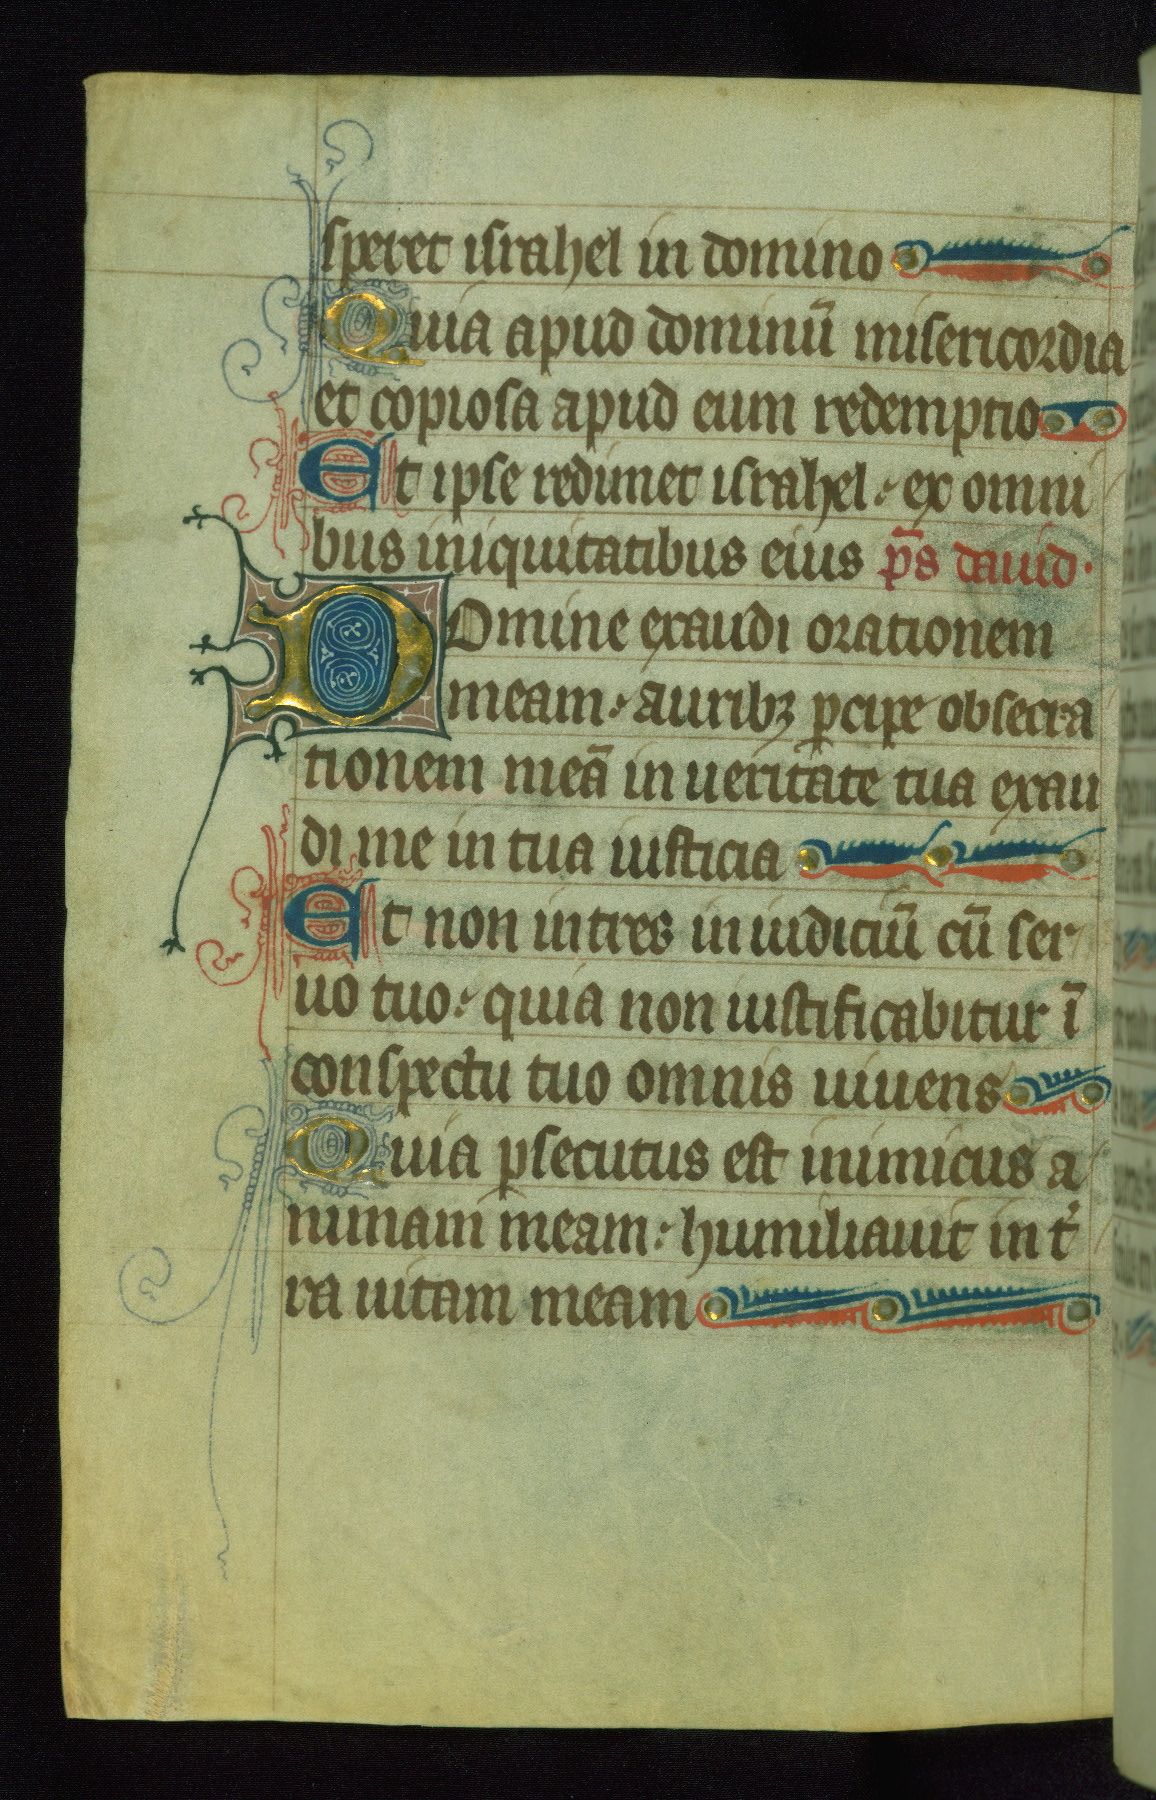 speret israhel in domino
Quia apud dominū misericordia
et copiosa apud eum redemptio
Et ipse redimet israhel : ex omni
bus iniquitatibus eius p̄s dauid .
Domine exaudi orationem
meam : auribꝫ ꝑcipe obsecra
tionem meā in ueritate tua exau
di me in tua iusticia
Et non intres in iudiciū cū ser
uo tuo : quia non iustificabitur ī
conspectu tuo omnis uiuens
Quia ꝑsecutus est inimicus a
nimam meam : humiliauit in t̉
ra uitam meam